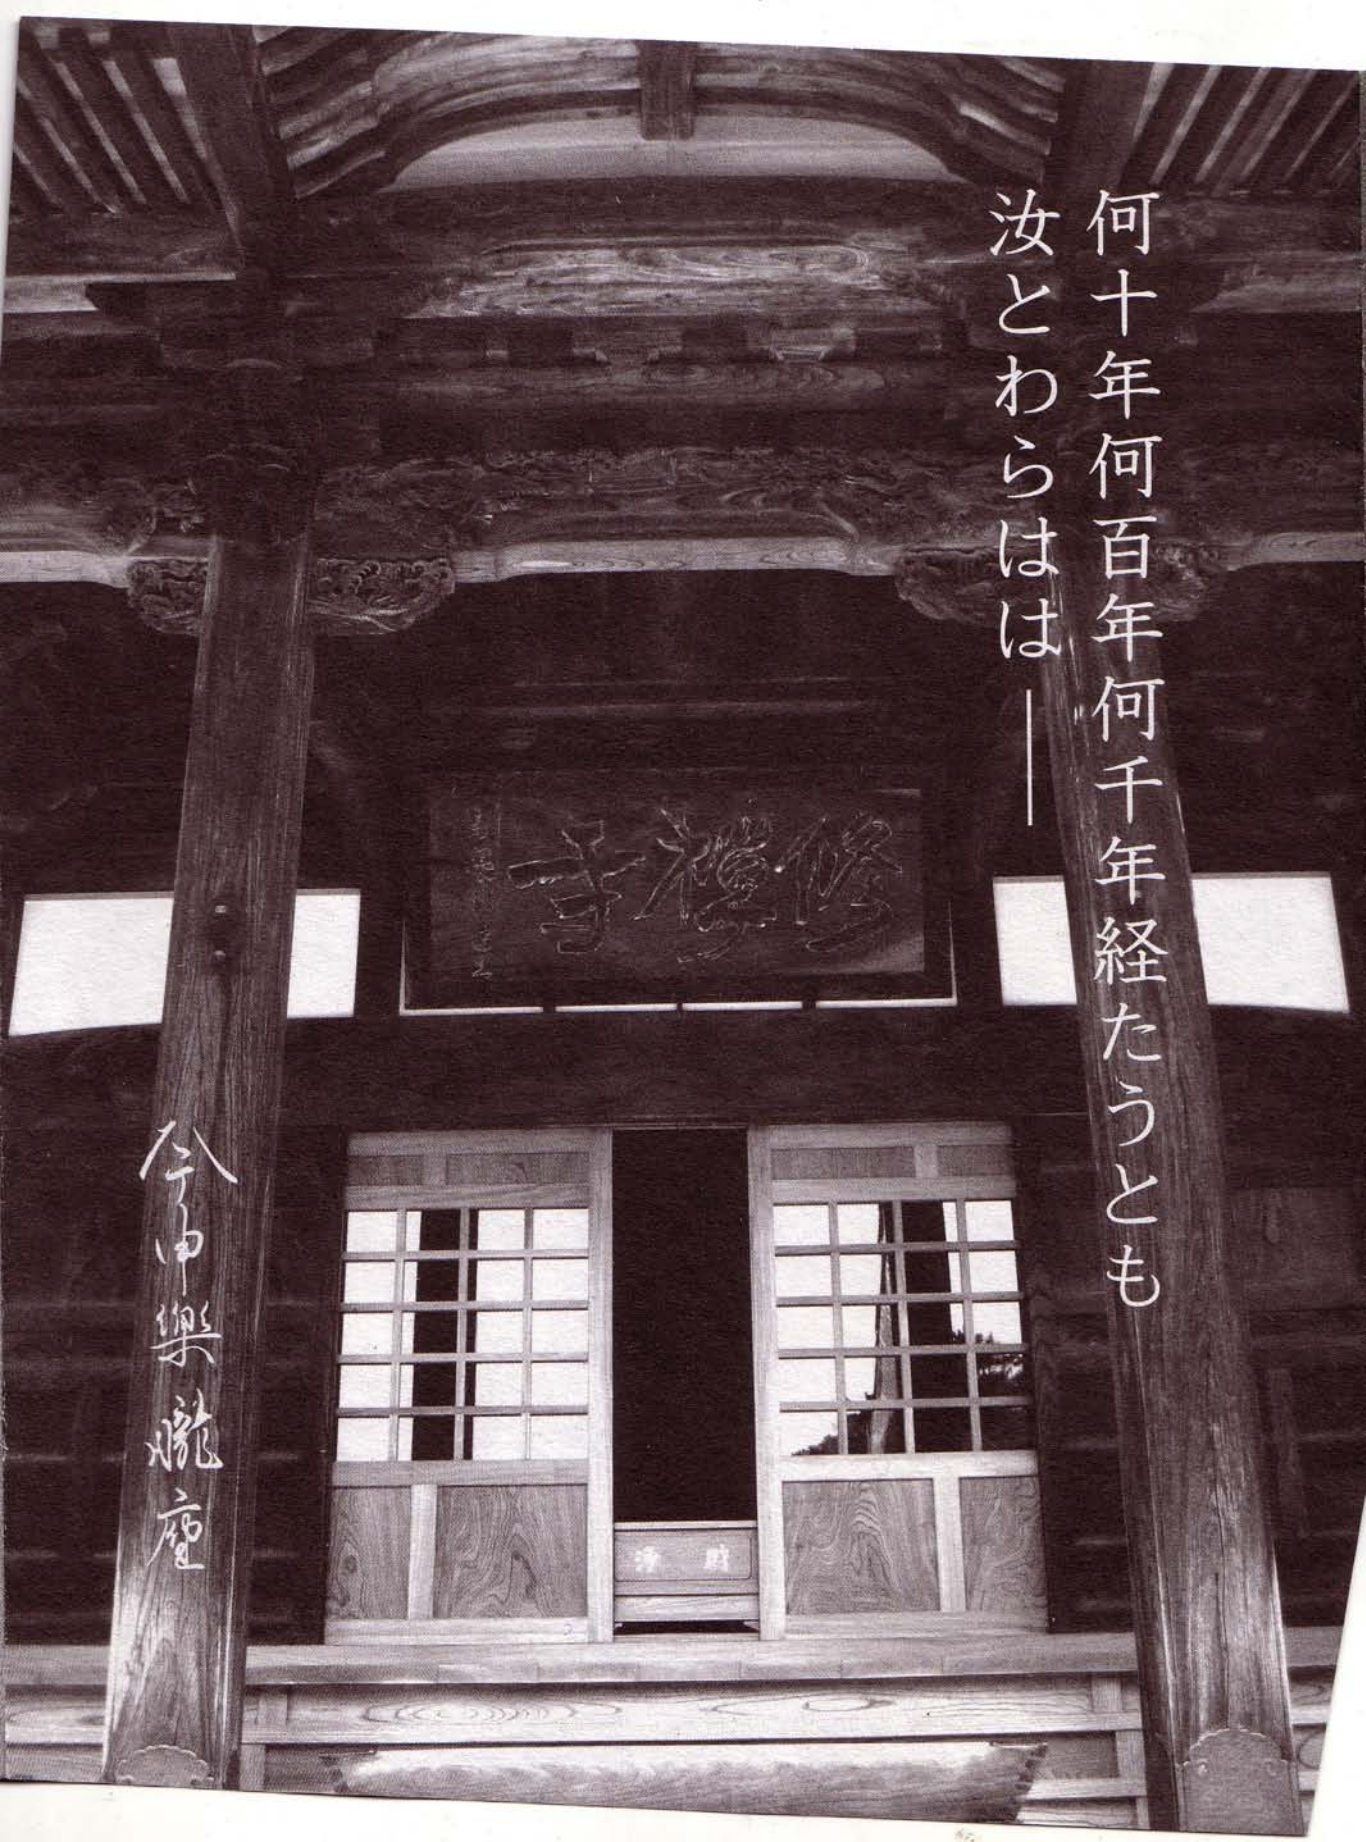 何十年何百年何千年経たうとも
汝とわらはは――
修禅寺
浄財
今申樂朧座